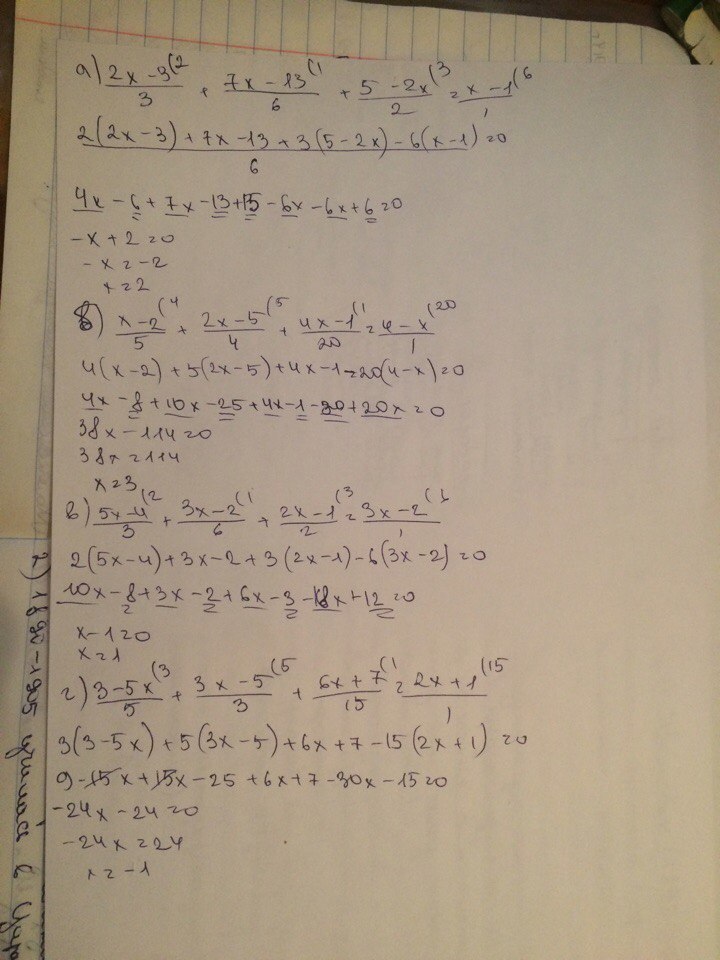 а) (2x-3)/3 (2 + (7x-13)/6 (1 + (5-2x)/2 (3 = (x-1)/1 (6
(2(2x-3)+7x-13+3(5-2x)-6(x-1))/6 =0
4x-6+7x-13+15-6x-6x+6=0
-x+2=0
-x=-2
x=2
б) (x-2)/5 (4 + (2x-5)/4 (5 + (4x-1)/20 (1 = (4-x)/1 (20
4(x-2)+5(2x-5)+4x-1-20(4-x)=0
4x-8+10x-25+4x-1-80+20x=0
38x-114=0
38x=114
x=3
в) (5x-4)/3 (2 + (3x-2)/6 (1 + (2x-1)/2 (3 = (3x-2)/1
2(5x-4)+3x-2+3(2x-1)-6(3x-2)=0
10x-8+3x-2+6x-3-18x+12=0
x-1=0
x=1
г) (3-5x)/5 (3 + (3x-5)/3 (5 + (6x+7)/15 (1 = (2x+1)/1 (15
3(3-5x)+5(3x-5)+6x+7-15(2x+1)=0
9-15x+15x-25+6x+7-30x-15=0
-24x-24=0
-24x=24
x=-1
2) 1890-1905 училась в